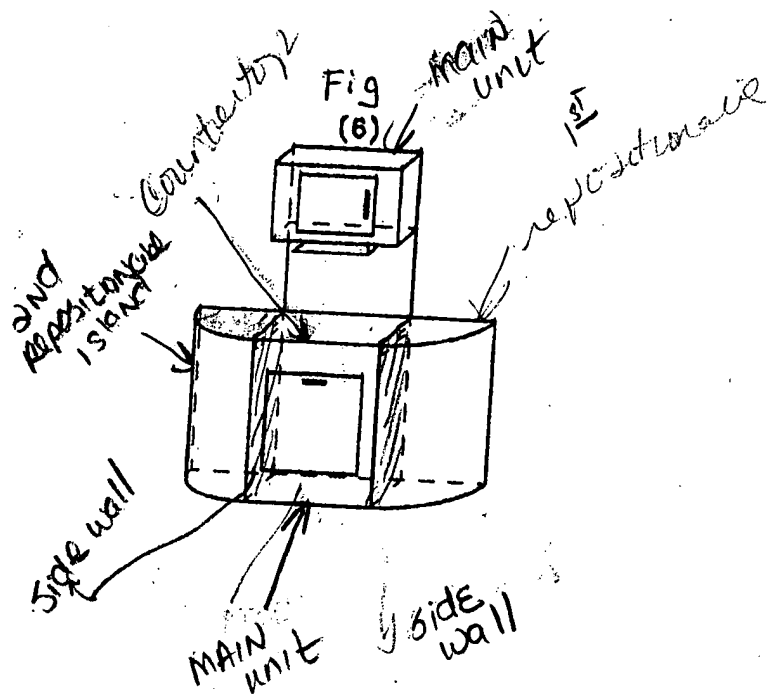 Fig
(6)
MAIN
unit
Countertop
1ST
repositionable
2ND
Repositionable
island
Side wall
MAIN
unit
side
wall